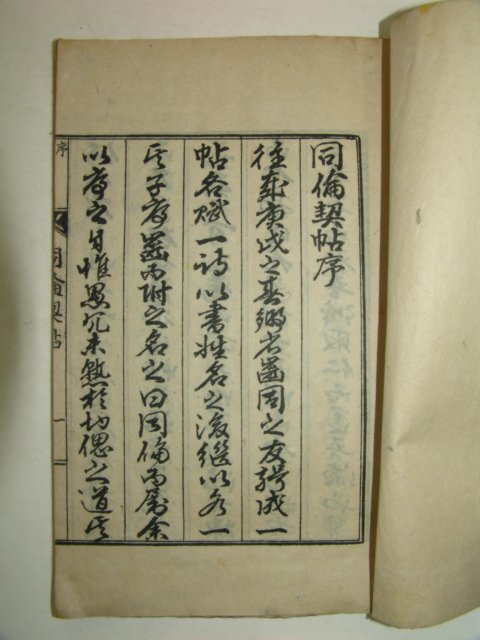 同倫契帖序
往在庚戌之春鄉省齒同之友釀成一
帖各賦一詩以書姓名之後繼以各一
子序齒而附之名之曰同倫而屬余
以序之自惟愚冗未熟於切偲之道
序
同倫契帖
一